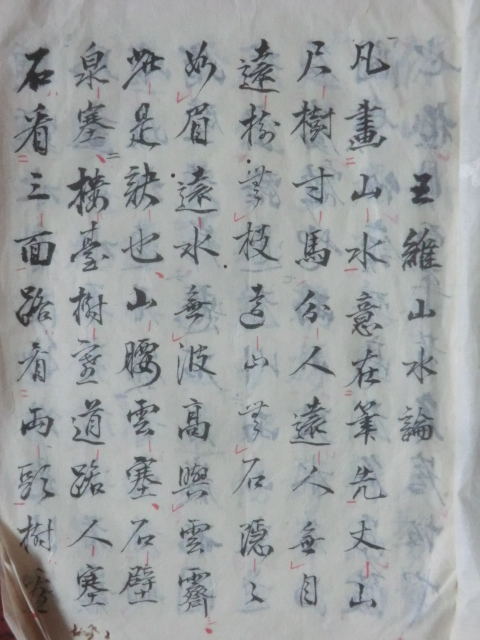 王維山水論
凡畫山水意在筆先丈山
尺樹寸馬分人遠人無目
遠樹無枝遠山無石隱〻
如眉遠水無波高與雲齊
此是訣也山腰雲塞石壁
泉塞樓臺樹塞道路人塞
石看三面路看兩頭樹